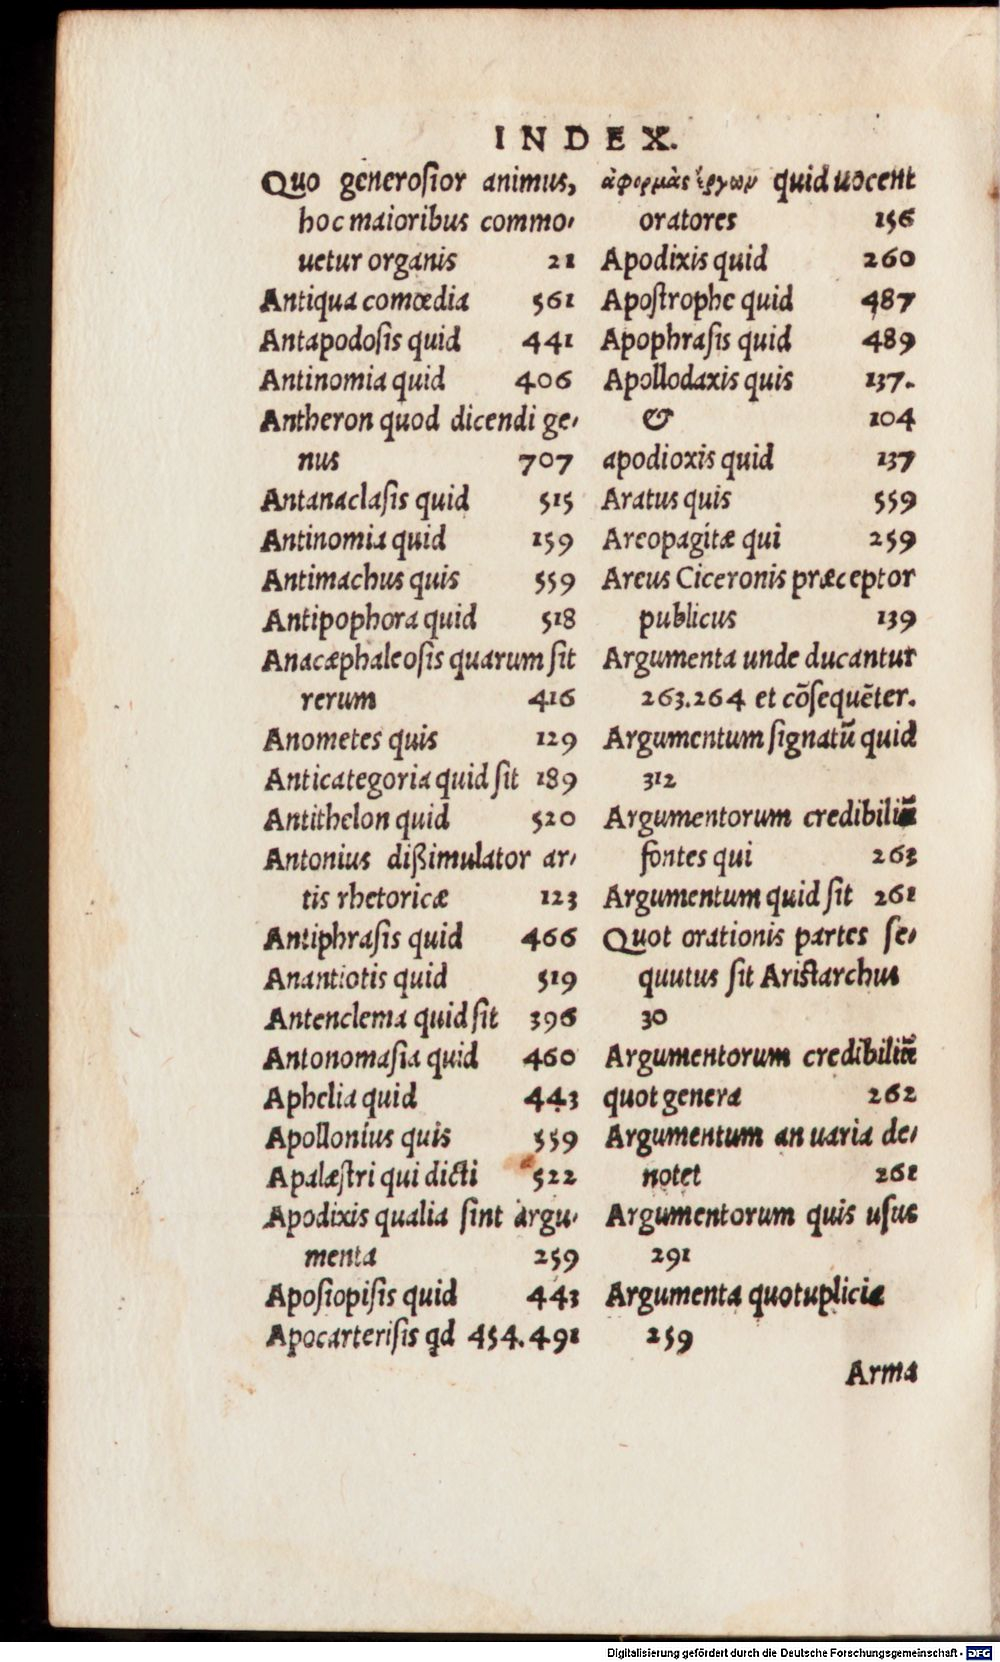 INDEX.
Quo generoſior animus,
hoc maioribus commo⸗
uetur organis 21
Antiqua comœdia 561
Antapodoſis quid 441
Antinomia quid 406
Antheron quod dicendi ge⸗
nus 707
Antanaclaſis quid 515
Antinomia quid 159
Antimachus quis 559
Antipophora quid 518
Anacæphaleoſis quarum ſit
rerum 416
Anometes quis 129
Anticategoria quid ſit 189
Antithelon quid 520
Antonius dißimulator ar⸗
tis rhetoricæ 123
Antiphraſis quid 466
Anantiotis quid 519
Antenclema quid ſit 396
Antonomaſia quid 460
Aphelia quid 443
Apollonius quis 559
Apalæſtri qui dicti 522
Apodixis qualia ſint argu⸗
menta 259
Apoſiopiſis quid 443
Apocarteriſis qd 454.491
ἀφορμὰς ἔργων quid uocent
oratores 156
Apodixis quid 260
Apoſtrophe quid 487
Apophraſis quid 489
Apollodaxis quis 137.
& 104
apodioxis quid 137
Aratus quis 559
Areopagitæ qui 259
Areus Ciceronis præceptor
publicus 139
Argumenta unde ducantur
263.264 et cõſequẽter.
Argumentum ſignatũ quid
312
Argumentorum credibiliũ
fontes qui 263
Argumentum quid ſit 261
Quot orationis partes ſe⸗
quutus ſit Ariſtarchus
30
Argumentorum credibiliũ
quot genera 262
Argumentum an uaria de⸗
notet 261
Argumentorum quis uſus
291
Argumenta quotuplicia
259
Arma
Digitalisierung gefördert durch die Deutsche Forschungsgemeinschaft - DFG